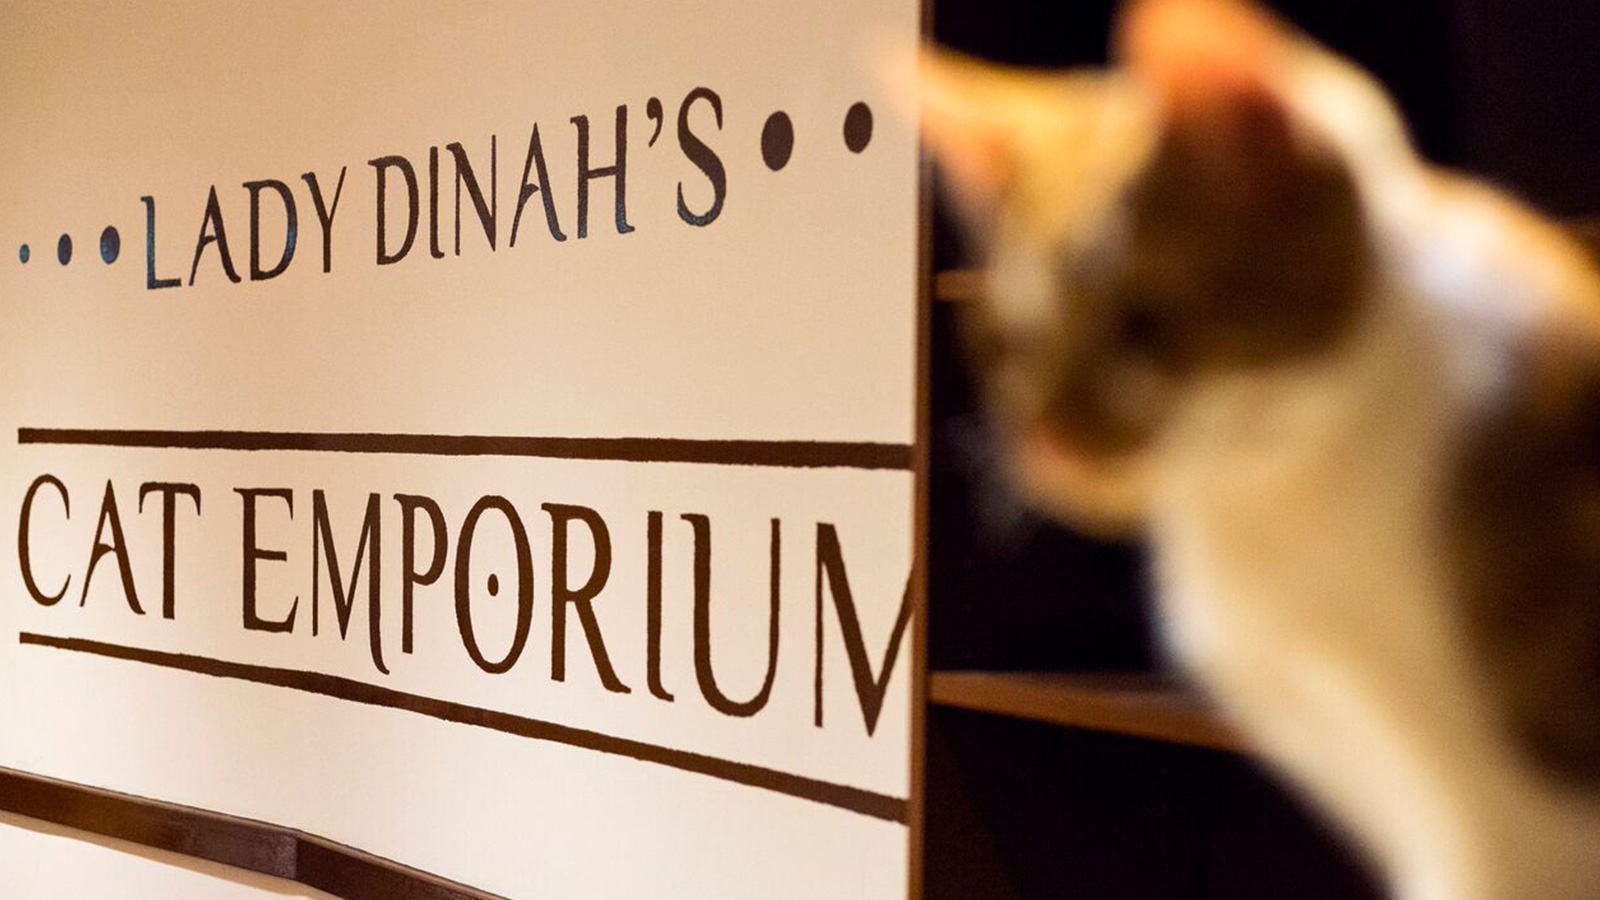 LADY DINAH'S
CAT EMPORIUM